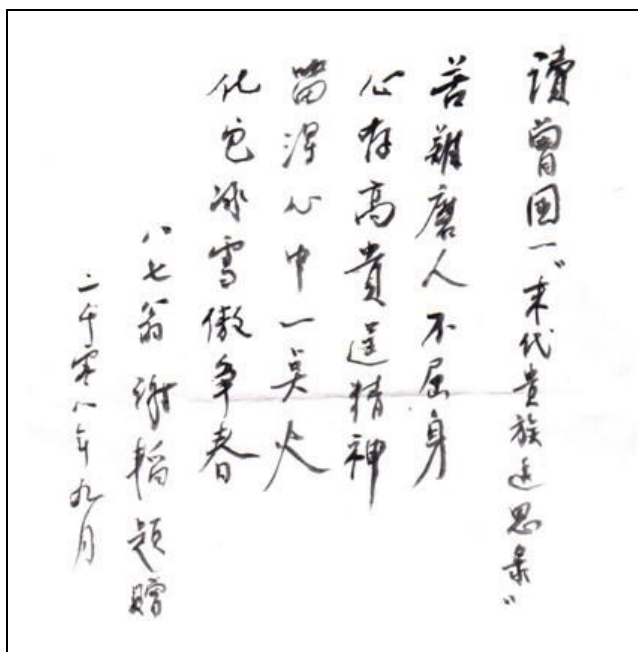 讀曾国一“末代貴族追思录”
苦難磨人不屈身
心存高貴逞精神
留得心中一点火
化它冰雪傲争春
八七翁 謝韜題贈
二千零八年九月